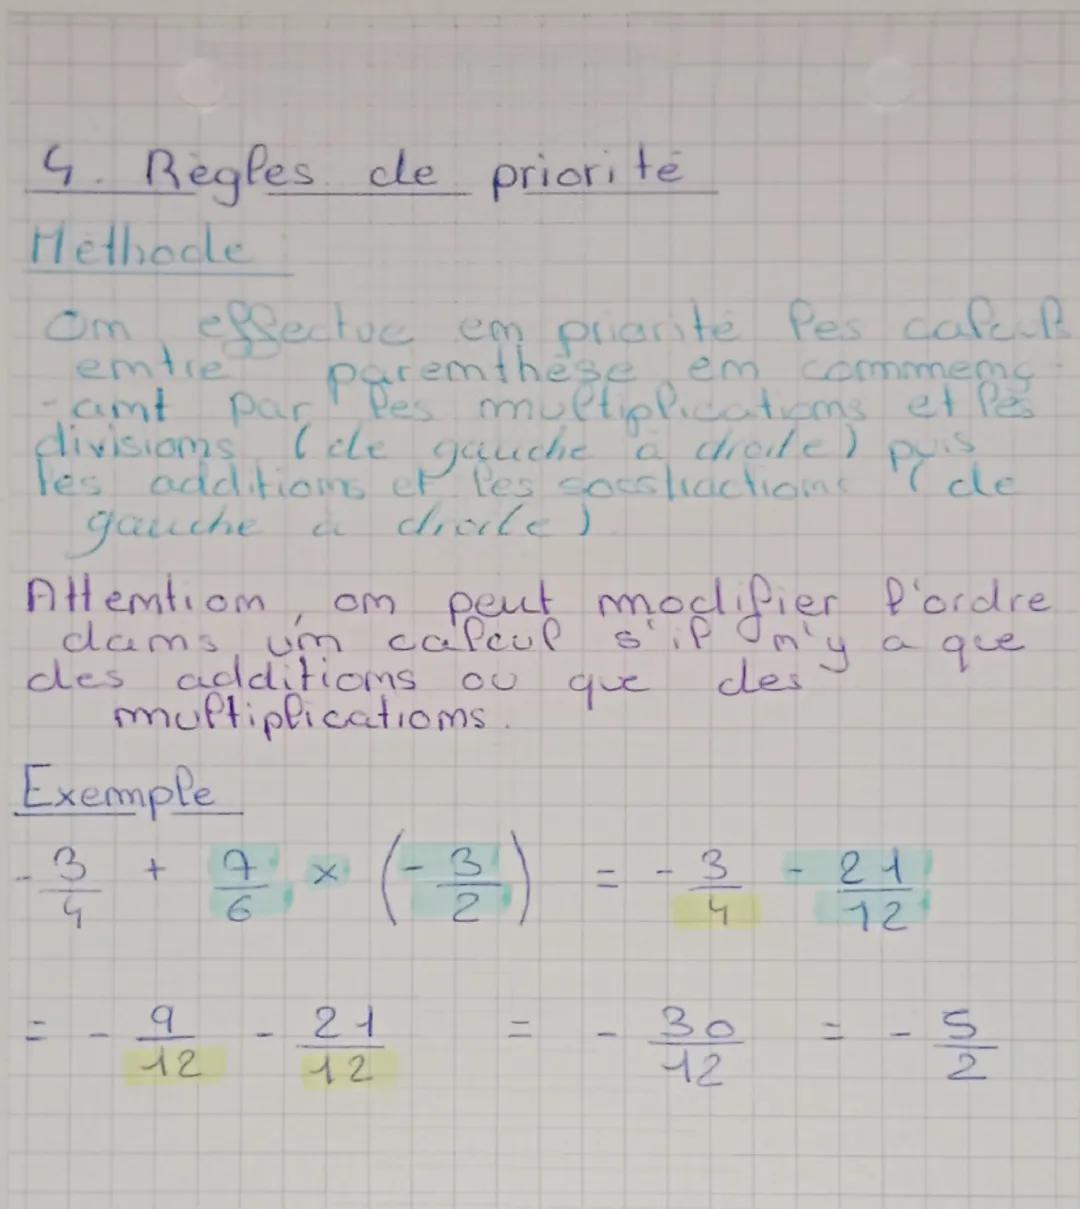 4. Règles de priorité
Méthode
On effectue en priorité les calculs
entre parenthèse en commenç
-ant par les multiplications et les
divisions (de gauche à droite) puis
les additions et les soustractions (de
gauche à droite)
Attention, on peut modifier l'ordre
dans un calcul s'il n'y a que
des additions ou que des
multiplications.
Exemple
- 3/4 + 7/6 × (- 3/2) = - 3/4 - 21/12
= - 9/12 - 21/12 = - 30/12 = - 5/2